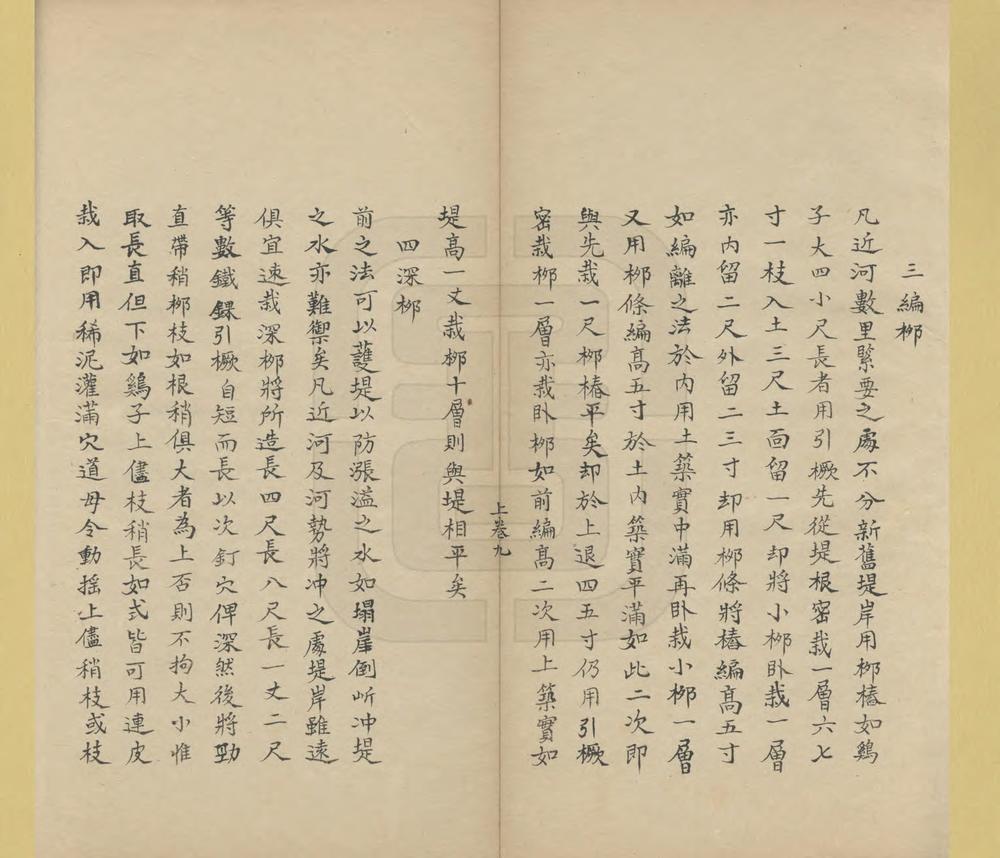 三編栁
凡近河數里緊要之處不分新舊堤岸用栁樁如鷄
子大四小尺長者用引橛先從堤根密栽一層六七
寸一枝入土三尺土面留一尺却將小栁卧栽一層
亦内留二尺外留二三寸却用栁條將樁編髙五寸
如編離之法於内用土築實中滿再卧栽小栁一層
又用栁條編髙五寸於土内築實平滿如此二次即
與先栽一尺栁樁平矣却於上退四五寸仍用引橛
密栽栁一層亦栽卧栁如前編髙二次用上築實如
上卷九
堤高一丈栽栁十層則與堤相平矣
四深栁
前之法可以護堤以防漲溢之水如塌岸倒岓冲堤
之水亦難禦矣凡近河及河勢將冲之處堤岸雖遠
俱宜速栽深栁將所造長四尺長八尺長一丈二尺
等數鐵錁引橛自短而長以次釘穴俾深然後將勁
直帶稍栁枝如根稍俱大者為上否則不拘大小惟
取長直但下如鷄子上儘枝稍長如式皆可用連皮
栽入即用稀泥灌滿穴道毋令動揺上儘稍枝或枝